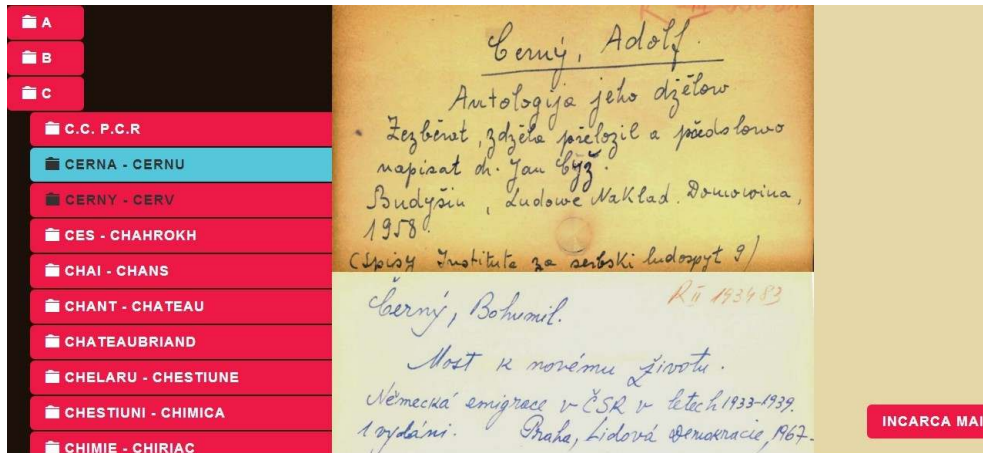 A
B
C
C.C. P.C.R
CERNA - CERNU
CERNY - CERV
CES - CHAHROKH
CHAI - CHANS
CHANT - CHATEAU
CHATEAUBRIAND
CHELARU - CHESTIUNE
CHESTIUNI - CHIMICA
CHIMIE - CHIRIAC
Černý, Adolf.
Antologija jeho dźěłow
Zezběrał, zdźěla přełožil a předsłowo
napisał dr. Jan Cyž.
Budyšin, Ludowe Nakład. Domowina,
1958.
(Spisy Instituta za serbski ludospyt 9)
R II 193483
Černý, Bohumil.
Most k novému životu.
Německá emigrace v ČSR v letech 1933-1939.
1 vydáni. Praha, Lidová Demokracie, 1967.
INCARCA MAI